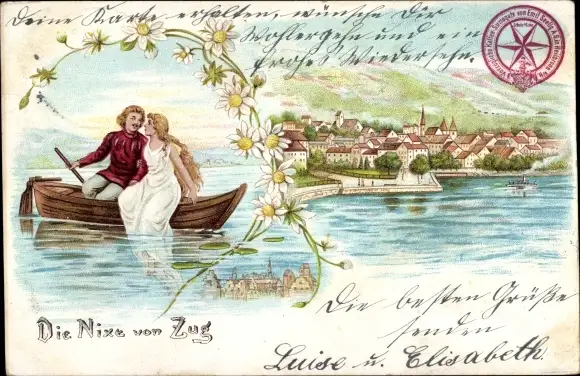 Deine Karte erhalten, wünsche Dir
Wohlergehn und ein
frohes Wiedersehn.
Die Nixe von Zug
Die besten Grüße
senden
Luise u. Elisabeth.